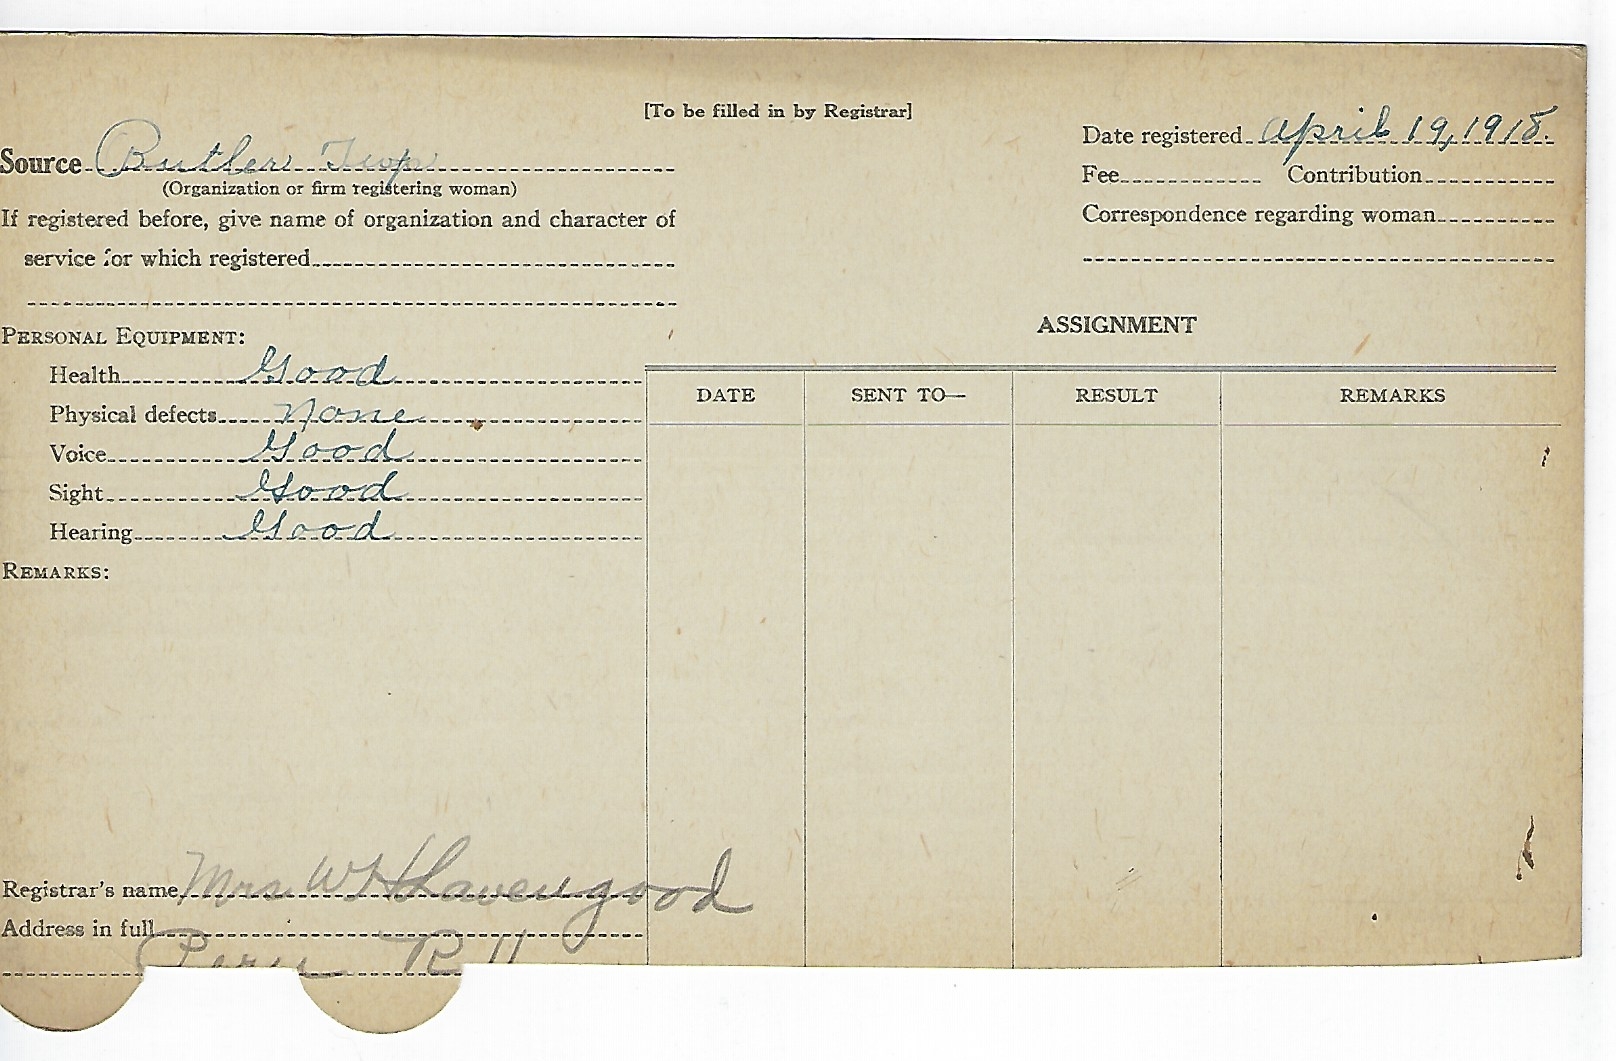 [To be filled in by Registrar]
Date registered April 19, 1918.
Source Butler Twp
(Organization or firm registering woman)
Fee Contribution
If registered before, give name of organization and character of
service for which registered
Correspondence regarding woman
PERSONAL EQUIPMENT:
Health Good
Physical defects None
Voice Good
Sight Good
Hearing Good
REMARKS:
ASSIGNMENT
DATE SENT TO— RESULT REMARKS
Registrar's name Mrs. W H Lavengood
Address in full
Peru R 11